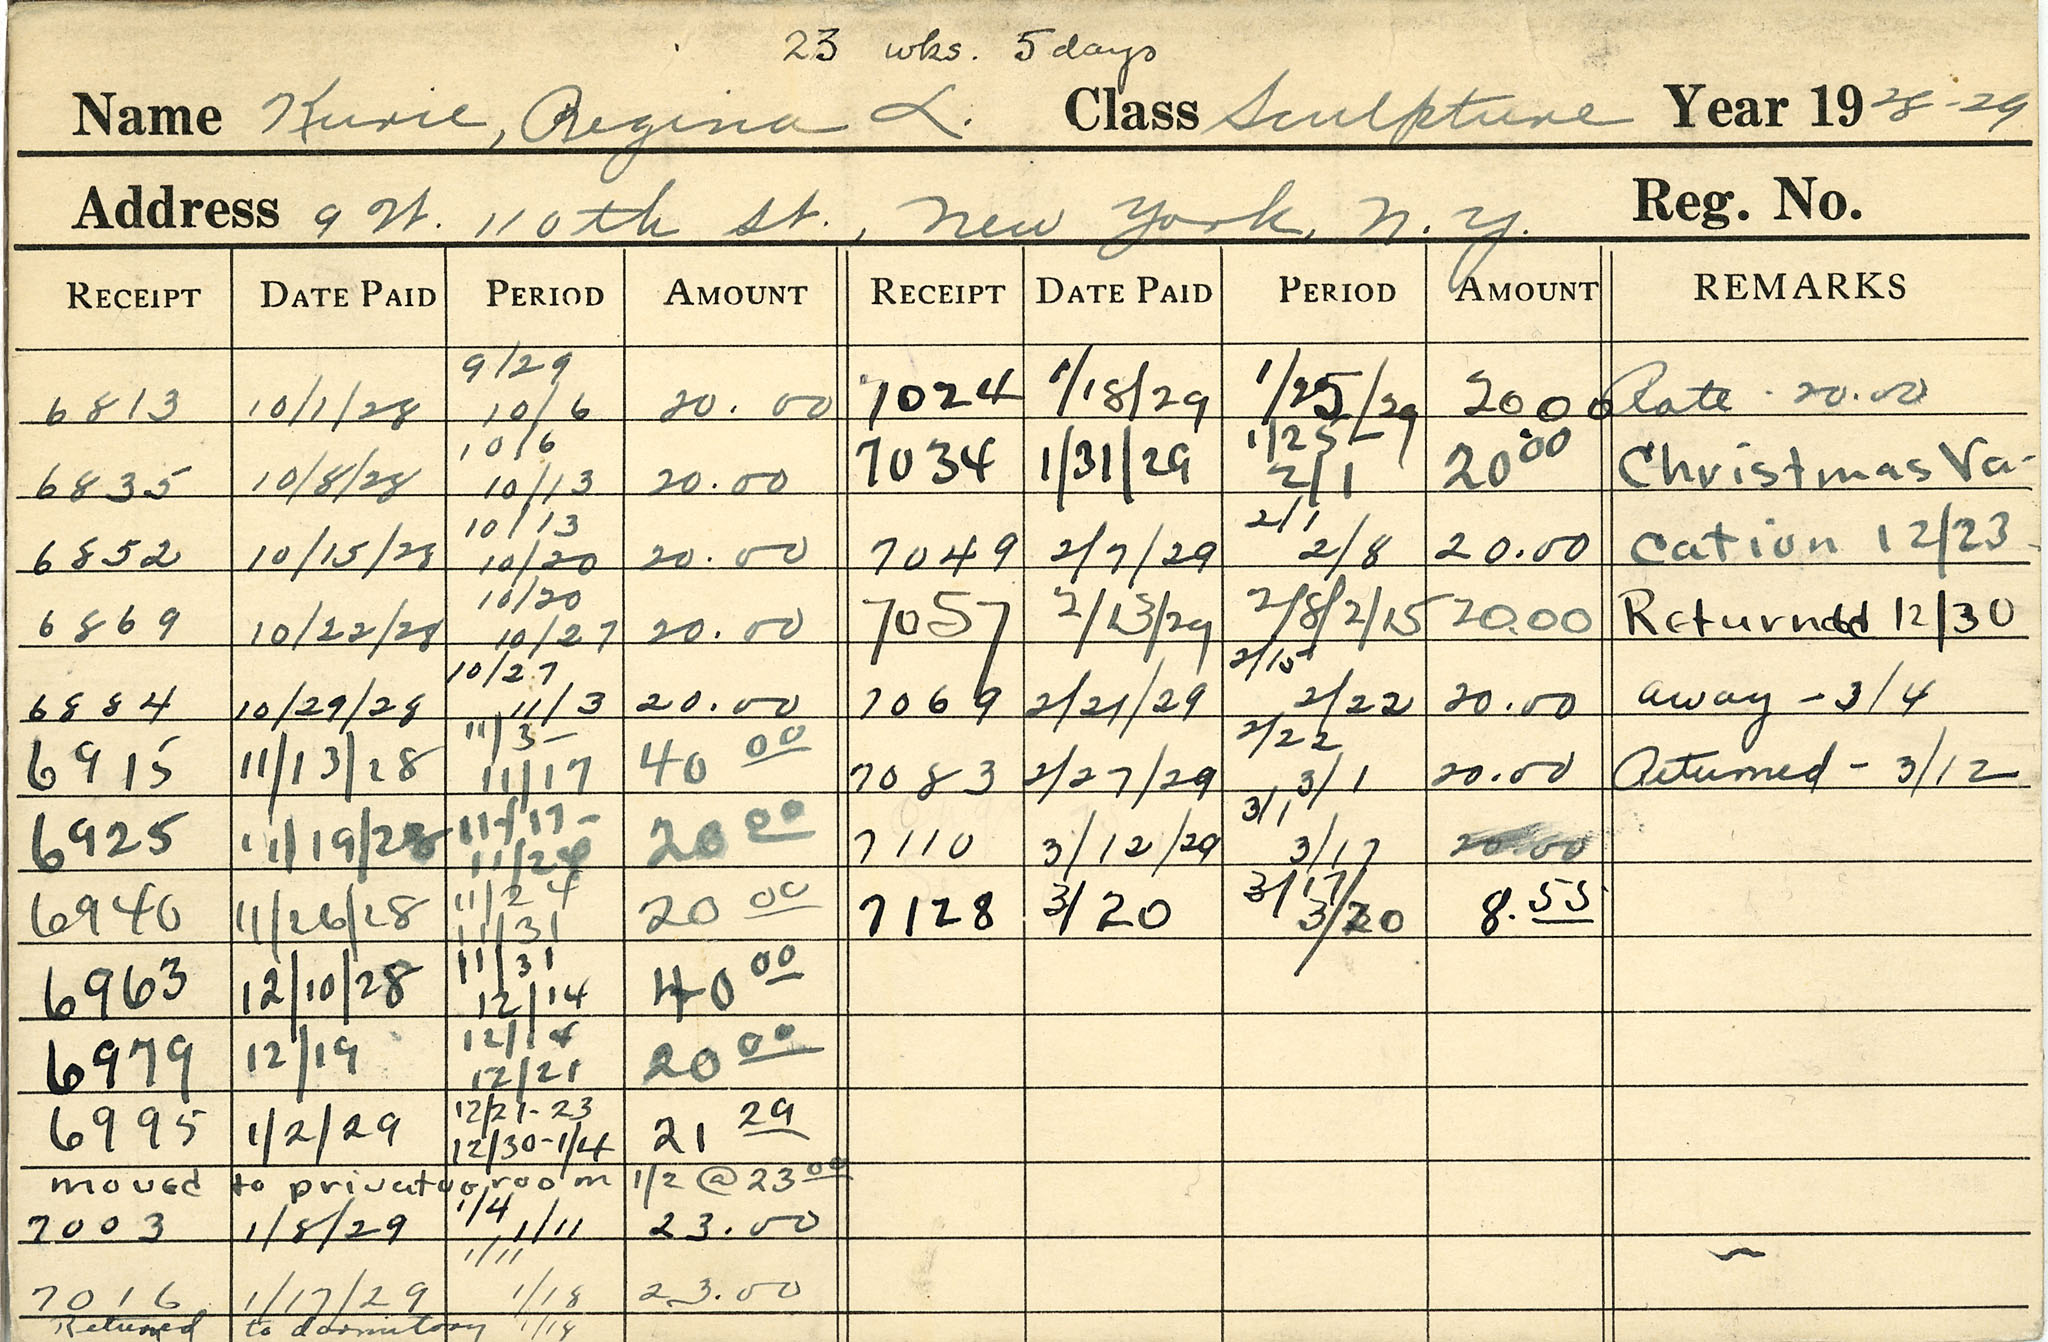 23 wks. 5 days
Name Kurie, Regina L. Class Sculpture Year 1928-29
Address 9 W. 110th St., New York, N.Y. Reg. No.
RECEIPT DATE PAID PERIOD AMOUNT RECEIPT DATE PAID PERIOD AMOUNT REMARKS
6813 10/1/28 9/29 10/6 20.00 7024 1/18/29 1/25/29 20.00 Rate - 20.00
6835 10/8/28 10/6 10/13 20.00 7034 1/31/29 1/25- 2/1 20.00 Christmas Va-
6852 10/15/28 10/13 10/20 20.00 7049 2/7/29 2/1 2/8 20.00 cation 12/23-
6869 10/22/28 10/20 10/27 20.00 7057 2/13/29 2/8/2/15 20.00 Returned 12/30
6884 10/29/28 10/27 11/3 20.00 7069 2/21/29 2/15 2/22 20.00 away - 3/4
6915 11/13/28 11/3- 11/17 40.00 7083 2/27/29 2/22 3/1 20.00 Returned - 3/12
6925 11/19/28 11/17- 20.00 7110 3/12/29 3/1 3/17 20.00
6940 11/26/28 11/24 11/31 20.00 7128 3/20 3/17/ 3/20 8.55
6963 12/10/28 11/31 12/14 40.00
6979 12/19 12/14 12/21 20.00
6995 1/2/29 12/21-23 12/30-1/4 21.29
moved to private room 1/2 @ 23.00
7003 1/8/29 1/4 1/11 23.00
7016 1/17/29 1/11 1/18 23.00
Returned to dormitory 1/18